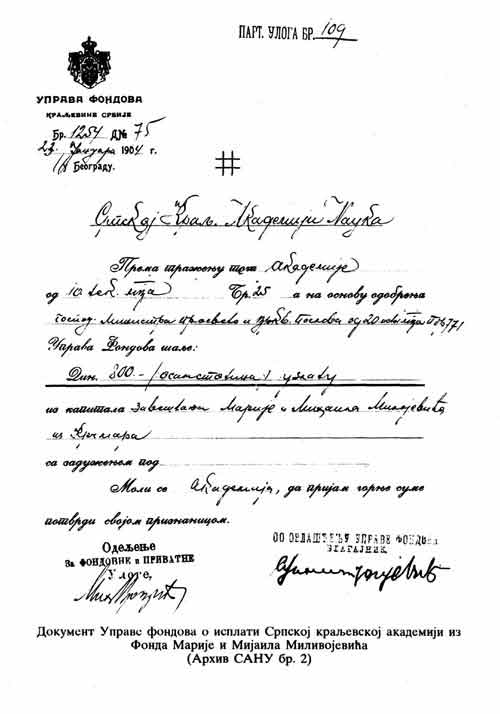 ПАРТ. УЛОГА БР. 109
УПРАВА ФОНДОВА
КРАЉЕВИНЕ СРБИЈЕ
Бр. 1254 Д№ 75
23. Јануара 1904 г.
у Београду.
Српској Краљ. Академији Наука
Према тражењу те Академије
од 10. тек. м-ца Бр. 25 а на основу одобрења
господ. Министра просвете и цркв. послова од 20 ов. м-ца
Управа Фондова шаље:
Дин. 800.- /осамстотина/ у злату
из капитала Завештања Марије и Михаила Миловојевића
из
са задужењем под
Моли се Академија, да пријам горње суме
потврди својом признаницом.
Одељење
За ФОНДОВНЕ и ПРИВАТНЕ
Улоге,
ПО ОВЛАШЋЕЊУ УПРАВЕ ФОНДОВА
БЛАГАЈНИК
Документ Управе фондова о исплати Српској краљевској академији из
Фонда Марије и Мијаила Миливојевића
(Архив САНУ бр. 2)